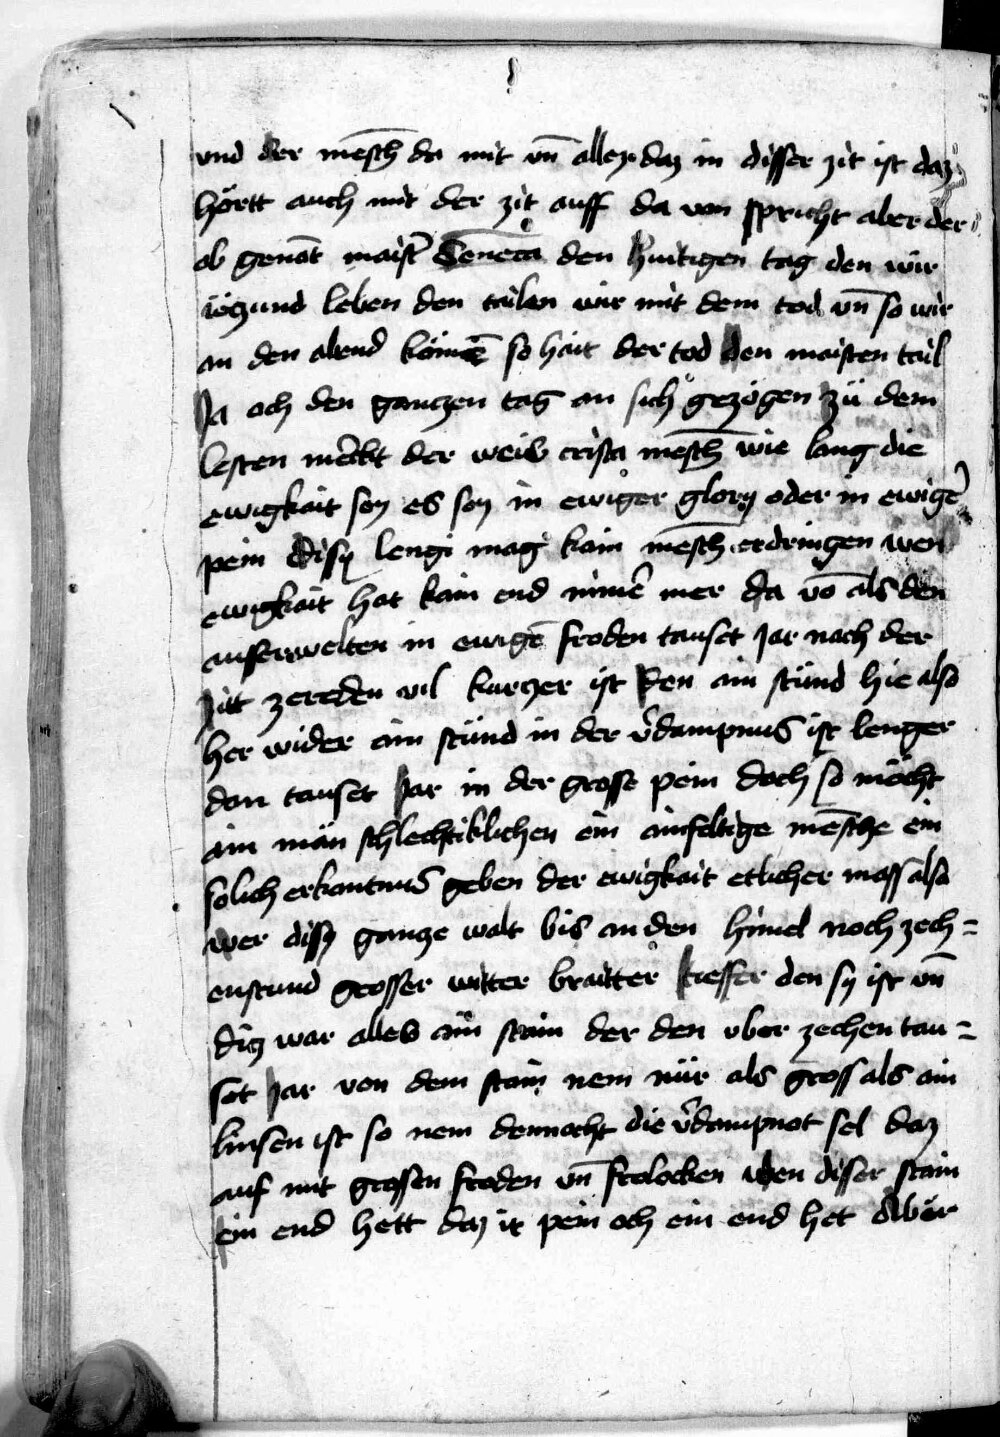 vnd der mēsch da mit vn̄ allez daz in disser zit ist daz
hörtt auch mit der zit auff da von spricht aber der
ob genāt maist̄ Seneca den hütigen tag den wir
iöczund leben den tailen wir mit dem tod vn̄ so wir
an den abend kömē so hăit der tod den maisten tail
Ja och den ganczen tag an sich gezögen zü dem
lesten merckt der weis crista mēsch wie lang die
ewigkait sey es sey in ewiger glory oder in ewigē
pein disy lengi mag kain mēsch erdringen wen
ewigkait hat kain end nimē mer da vō als den
auserwelten in ewigē froden tauset Jar nach der
zitt zereden vil kurczer ist den ain stünd hie also
her wider ain stünd in der v̄dampnus ist lenger
dan tauset Jar in der grosse pein doch so möcht
ain man schlechtiklichen ein ainfeltige mēsche ein
solich erkantnus geben der ewigkait etlicher mass also
wer disy gancze walt bis an den himel noch zech=
enstund grosser witter braitter tieffer den sy ist vn̄
dis war alles ain stain der den vber zechen tau=
set Jar von dem stain nem nür als gross als ain
linsen ist so nem dennocht die v̄dampnot sel daz
auf mit grossen froden vn̄ frolocken wen diser stain
ein end hett daz ir pein och ein end het aber